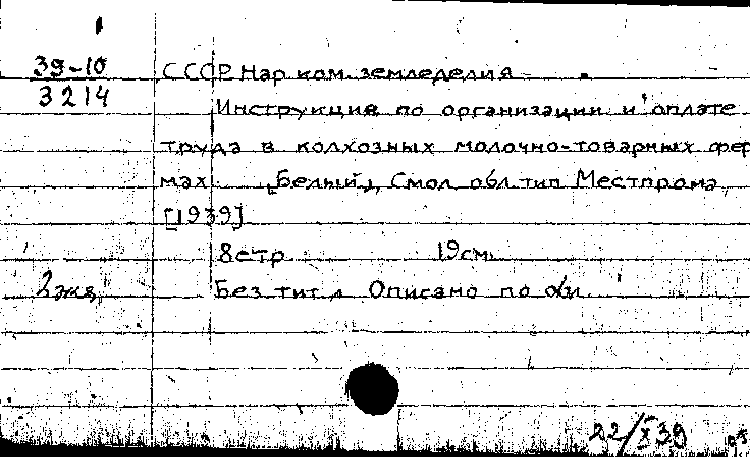 39-10
3214
СССР Нар ком. земледелия
Инструкция по организации и оплате
труда в колхозных молочно-товарных фер
мах. [Белый], Смол. обл. тип Местпрома
[1939]
8 стр 19 см.
2 экз Без тит. л Описано по обл.
22/X 39